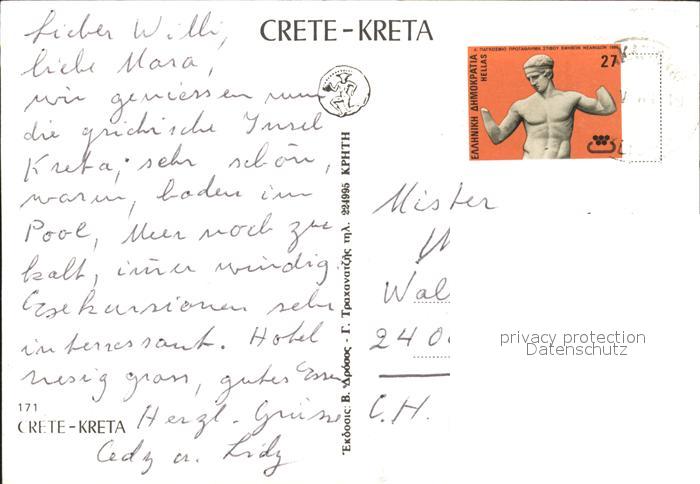 CRETE-KRETA
Lieber Willi,
liebe Mara,
wir geniessen nun
die grichische Insel
Kreta, sehr schön,
warm, baden im
Pool, Meer noch zu
kalt, imer windig.
Exekursionen sehr
interressant. Hotel
riesig gross, gutes Essen
Herzl. Grüsse
Cedy u. Lidy
171
CRETE-KRETA
Έκδοσις: Β. Δρόσος - Γ. Τραχανατζής τηλ. 224995 ΚΡΗΤΗ
Α' ΠΑΓΚΟΣΜΙΟ ΠΡΩΤΑΘΛΗΜΑ ΣΤΙΒΟΥ ΕΦΗΒΩΝ ΝΕΑΝΙΔΩΝ 1986
27
ΕΛΛΗΝΙΚΗ ΔΗΜΟΚΡΑΤΙΑ
HELLAS
Mister
Wal
240
C.H.
privacy protection
Datenschutz